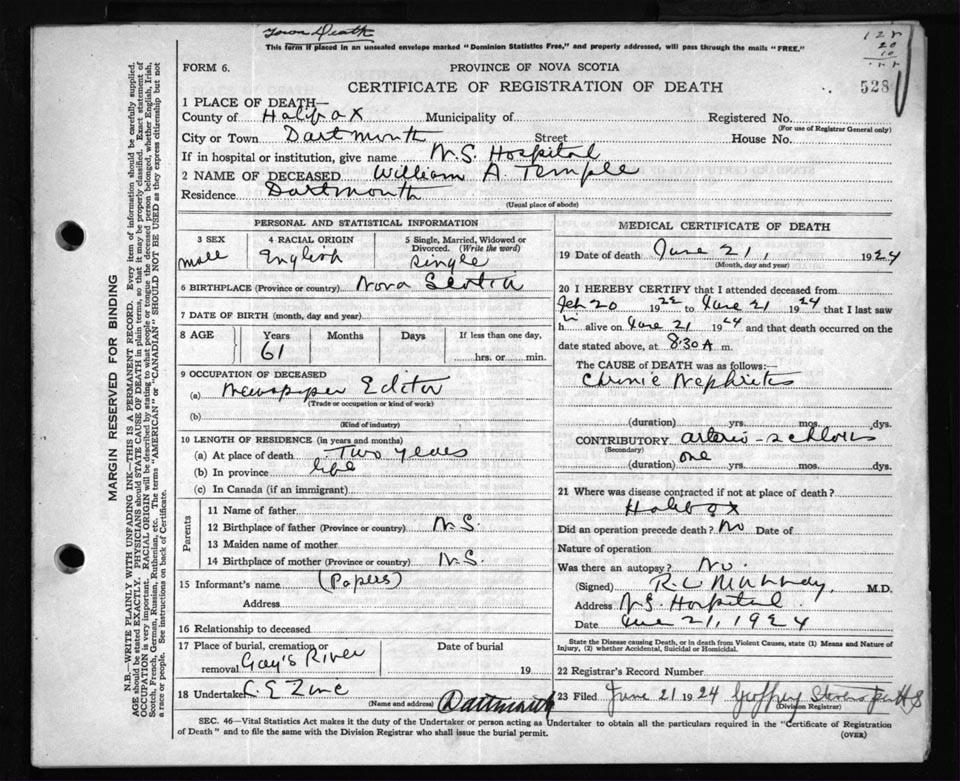 Town Death
This form if placed in an unsealed envelope marked "Dominion Statistics Free," and properly addressed, will pass through the mails "FREE."
FORM 6.
PROVINCE OF NOVA SCOTIA
CERTIFICATE OF REGISTRATION OF DEATH
528
MARGIN RESERVED FOR BINDING
N.B.—WRITE PLAINLY WITH UNFADING INK—THIS IS A PERMANENT RECORD. Every item of information should be carefully supplied.
AGE should be stated EXACTLY. PHYSICIANS should STATE CAUSE OF DEATH in plain terms, so that it may be properly classified. Exact statement of
OCCUPATION is very important. RACIAL ORIGIN will be described by stating to what people or tongue the deceased person belonged, whether English, Irish,
Scotch, French, German, Russian, Ruthenian, etc. The terms "AMERICAN" or "CANADIAN" SHOULD NOT BE USED as they express citizenship but not
a race or people. See instructions on back of Certificate.
1 PLACE OF DEATH—
County of Halifax Municipality of Registered No.
(For use of Registrar General only)
City or Town Dartmouth Street House No.
If in hospital or institution, give name N.S. Hospital
2 NAME OF DECEASED William A. Temple
Residence Dartmouth
(Usual place of abode)
PERSONAL AND STATISTICAL INFORMATION
3 SEX
male
4 RACIAL ORIGIN
English
5 Single, Married, Widowed or
Divorced. (Write the word)
single
6 BIRTHPLACE (Province or country) Nova Scotia
7 DATE OF BIRTH (month, day and year)
8 AGE Years Months Days If less than one day,
61 hrs. or min.
9 OCCUPATION OF DECEASED
(a) Newspaper Editor
(Trade or occupation or kind of work)
(b)
(Kind of industry)
10 LENGTH OF RESIDENCE (in years and months)
(a) At place of death Two years
(b) In province life
(c) In Canada (if an immigrant)
Parents
11 Name of father
12 Birthplace of father (Province or country) N.S.
13 Maiden name of mother
14 Birthplace of mother (Province or country) N.S.
15 Informant's name (Papers)
Address
16 Relationship to deceased
17 Place of burial, cremation or Date of burial
removal Gay's River 19
18 Undertaker
(Name and address) Dartmouth
MEDICAL CERTIFICATE OF DEATH
19 Date of death June 21, 1924
(Month, day and year)
20 I HEREBY CERTIFY that I attended deceased from
Feb 20 1922 to June 21 1924 that I last saw
him alive on June 21 1924 and that death occurred on the
date stated above, at 8:30 A m.
The CAUSE of DEATH was as follows:—
Chronic Nephritis
(duration) yrs. mos. dys.
CONTRIBUTORY arterio-sclerosis
(Secondary)
(duration) one yrs. mos. dys.
21 Where was disease contracted if not at place of death?
Halifax
Did an operation precede death? No Date of
Nature of operation
Was there an autopsy? No.
(Signed) M.D.
Address N.S. Hospital
Date June 21, 1924
State the Disease causing Death, or in death from Violent Causes, state (1) Means and Nature of
Injury, (2) whether Accidental, Suicidal or Homicidal.
22 Registrar's Record Number
23 Filed June 21 1924 Geoffrey Stevens
(Division Registrar)
SEC. 46—Vital Statistics Act makes it the duty of the Undertaker or person acting as Undertaker to obtain all the particulars required in the "Certificate of Registration
of Death" and to file the same with the Division Registrar who shall issue the burial permit. (OVER)